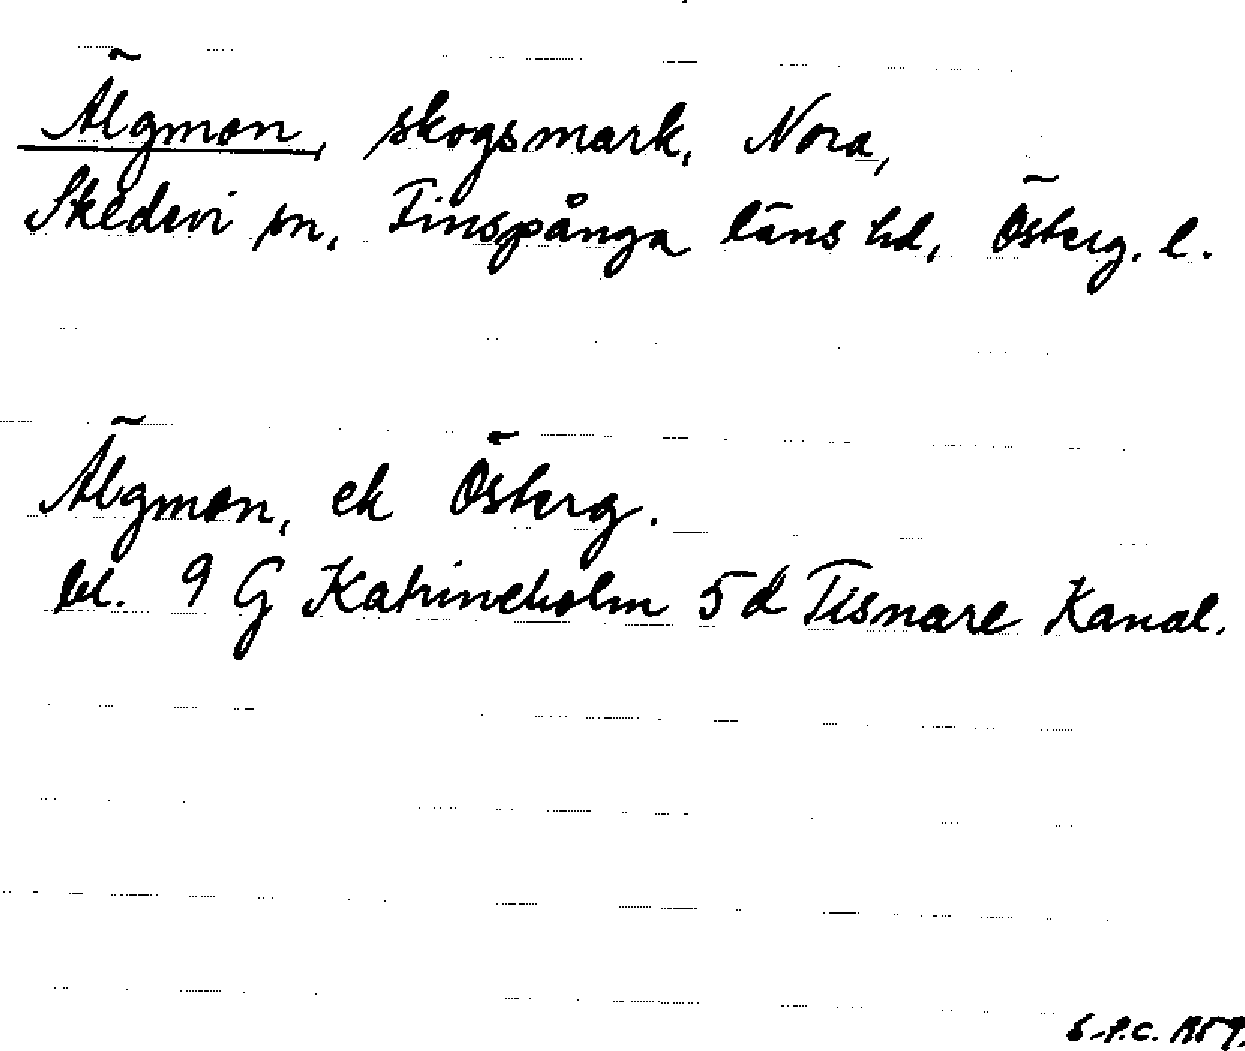 Älgmon, skogsmark, Nora,
Skedevi sn, Finspånga läns hd, Österg. l.
Älgmon, ek Österg.
bl. 9 G Katrineholm 5 d Tisnare Kanal.